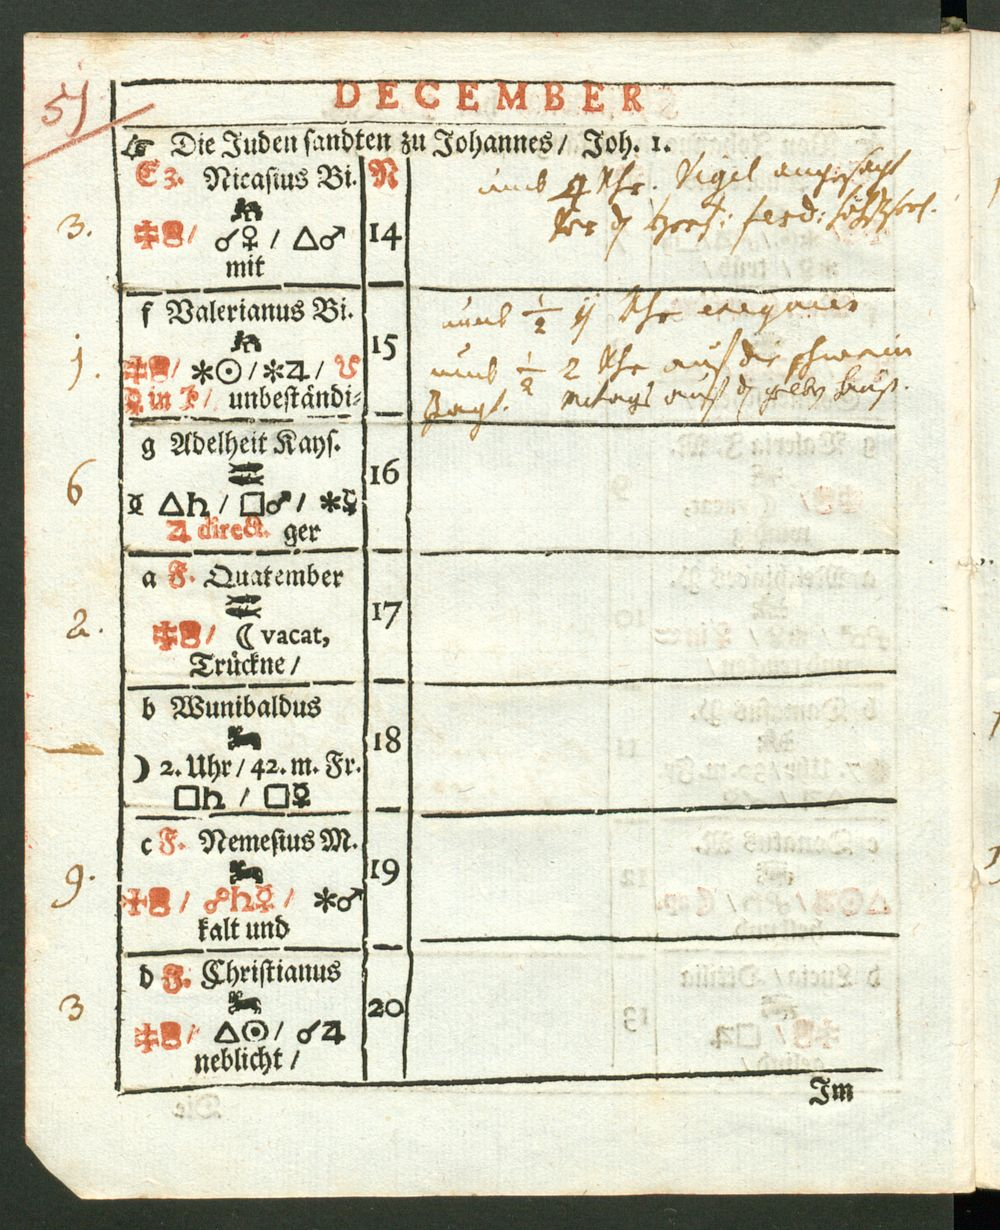 51
DECEMBER
☞ Die Juden sandten zu Johannes/ Joh. 1.
E 3. Nicasius Bi. N
umb Uhr. Vigil angesagt
3. ☌♀ / △♂ 14
mit
f Valerianus Bi.
umb 1/2 Uhr
1. ✶☉/✶♃/ ☋ 15
umb 1/2 2 Uhr auf die schwein
in unbeständi⸗
Jagt.
g Adelheit Kays.
6 16
☿ △♄ / □♂ / ✶♀
♃ direct. ger
a F. Quatember
2. / ☾ vacat, 17
Trückne /
b Wunibaldus
18
☽ 2. Uhr / 42. m. Fr.
□♄ / □☿
c F. Nemesius M.
19
9. / ☍♄☿ / ✶♂
kalt und
d F. Christianus
20
3 / △☉/ ☌♃
neblicht /
Im